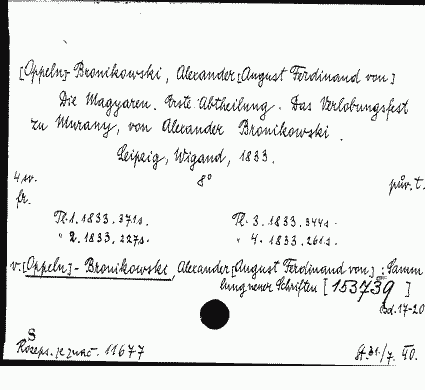 [Oppeln]- Bronikowski, Alexander [August Ferdinand von]
Die Magyaren. Erste Abtheilung. Das Verlobungsfest
zu Murany, von Alexander Bronikowski.
Leipzig, Wigand, 1833.
4 sv. 8° pův. t.
fr.
Tl. 1. 1833. 371 s. Tl. 3. 1833. 344 s.
" 2. 1833. 227 s. " 4. 1833. 261 s.
v. [Oppeln]- Bronikowski, Alexander [August Ferdinand von] : Samm
lung neuer Schriften [153739]
Bd. 17-20
S
Rozeps. je znač. 11677 St. 31/7. 40.